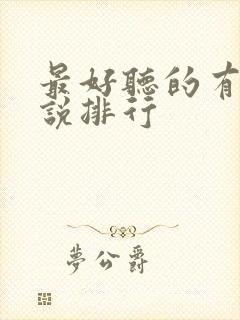 最好聽的有
說排行
夢公爵